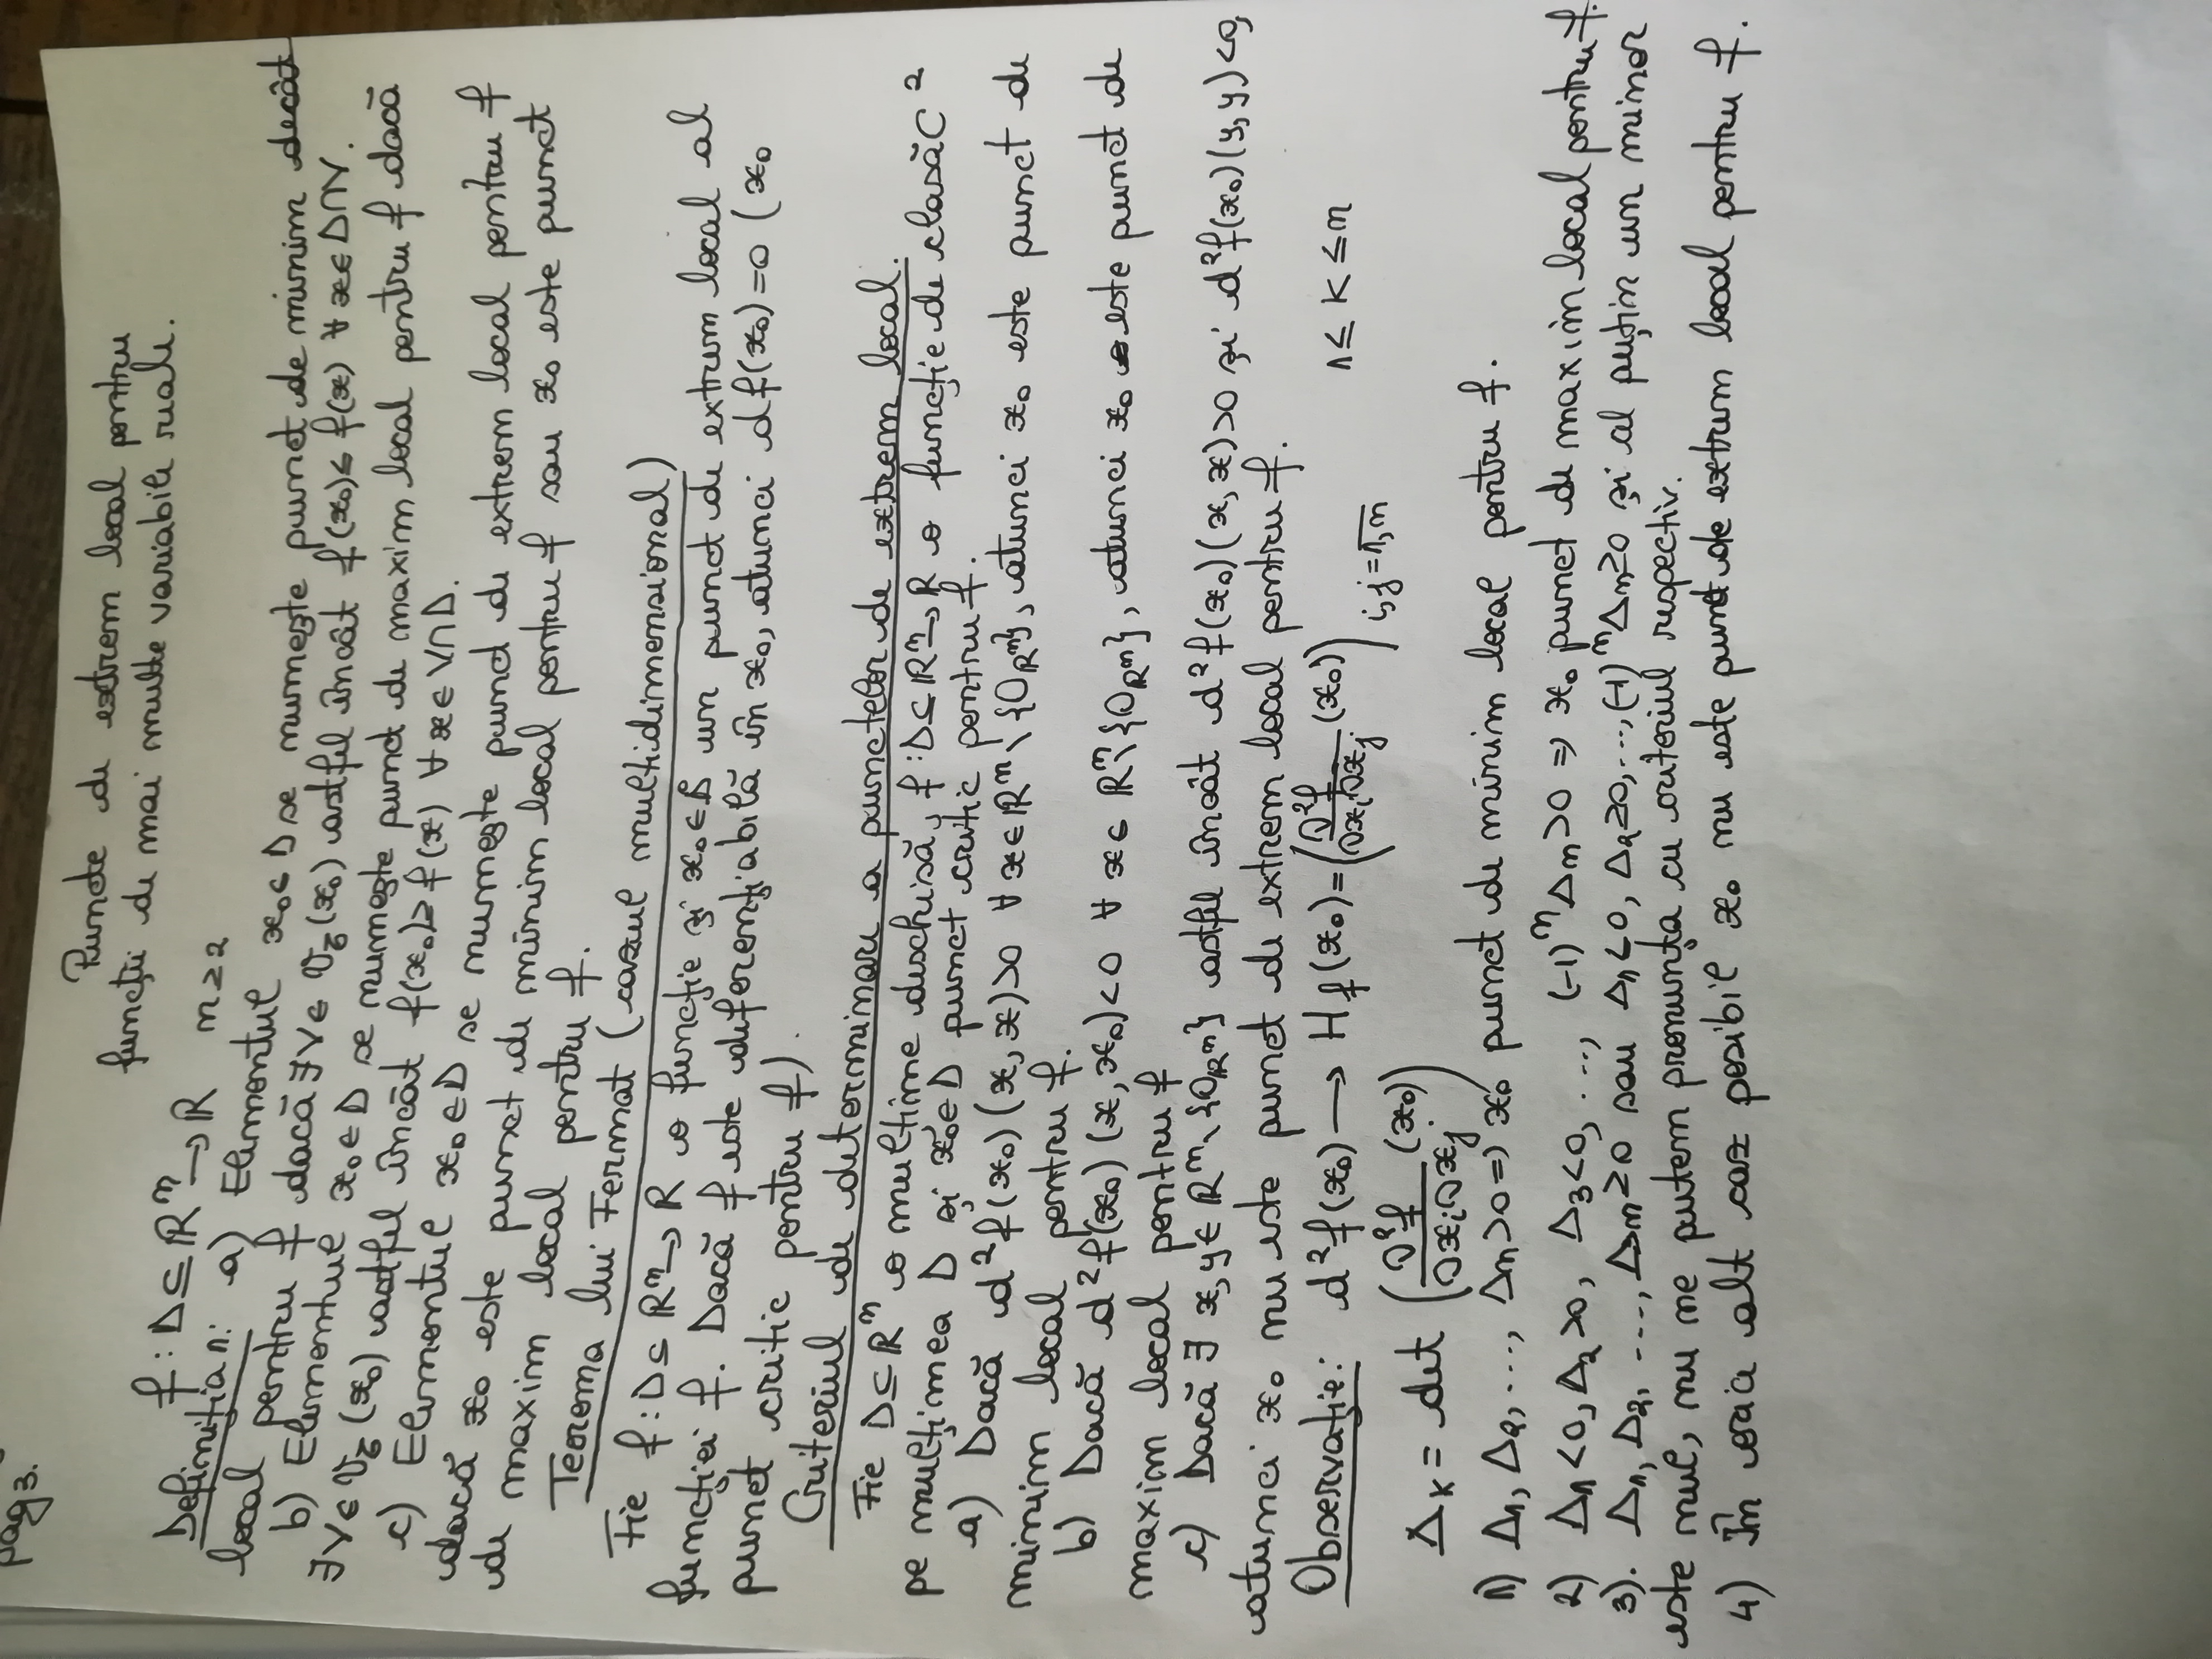 pag 3.
Puncte de extrem local pentru
funcții de mai multe variabile reale.
f : D ⊆ ℝⁿ → ℝ n ≥ 2
Definiția 1: a) Elementul x₀ ∈ D se numește punct de minim decât
local pentru f dacă ∃ V ∈ 𝒱_𝒢(x₀) astfel încât f(x₀) ≤ f(x) ∀ x ∈ D∩V.
b) Elementul x₀ ∈ D se numește punct de maxim local pentru f dacă
∃ V ∈ 𝒱_𝒢(x₀) astfel încât f(x₀) ≥ f(x) ∀ x ∈ V∩D.
c) Elementul x₀ ∈ D se numește punct de extrem local pentru f
dacă x₀ este punct de minim local pentru f sau x₀ este punct
de maxim local pentru f.
Teorema lui Fermat (cazul multidimensional)
Fie f : D ⊆ ℝⁿ → ℝ o funcție și x₀ ∈ D un punct de extrem local al
funcției f. Dacă f este diferențiabilă în x₀, atunci df(x₀) = 0 (x₀
punct critic pentru f).
Criteriul de determinare a punctelor de extrem local.
Fie D ⊆ ℝⁿ o mulțime deschisă, f : D ⊆ ℝⁿ → ℝ o funcție de clasă C²
pe mulțimea D și x₀ ∈ D punct critic pentru f.
a) Dacă d²f(x₀)(x, x) > 0 ∀ x ∈ ℝⁿ \ {0_ℝⁿ}, atunci x₀ este punct de
minim local pentru f.
b) Dacă d²f(x₀)(x, x₀) < 0 ∀ x ∈ ℝⁿ \ {0_ℝⁿ}, atunci x₀ este punct de
maxim local pentru f
c) Dacă ∃ x, y ∈ ℝⁿ \ {0_ℝⁿ} astfel încât d²f(x₀)(x, x) > 0 și d²f(x₀)(y, y) < 0,
atunci x₀ nu este punct de extrem local pentru f.
Observație: d²f(x₀) → H_f(x₀) = (∂²f/∂xᵢ∂xⱼ (x₀)) i,j = 1,n 1 ≤ k ≤ n
Δₖ = det (∂²f/∂xᵢ∂xⱼ (x₀))
1) Δ₁, Δ₂, ..., Δₙ > 0 ⇒ x₀ punct de minim local pentru f.
2) Δ₁ < 0, Δ₂ > 0, Δ₃ < 0, ..., (-1)ⁿ Δₙ > 0 ⇒ x₀ punct de maxim local pentru f.
3). Δ₁, Δ₂, ..., Δₙ ≥ 0 sau Δ₁ ≤ 0, Δ₂ ≥ 0, ..., (-1)ⁿ Δₙ ≥ 0 și al puțin un minor
este nul, nu ne putem pronunța cu criteriul respectiv.
4) În orice alt caz posibil x₀ nu este punct de extrem local pentru f.